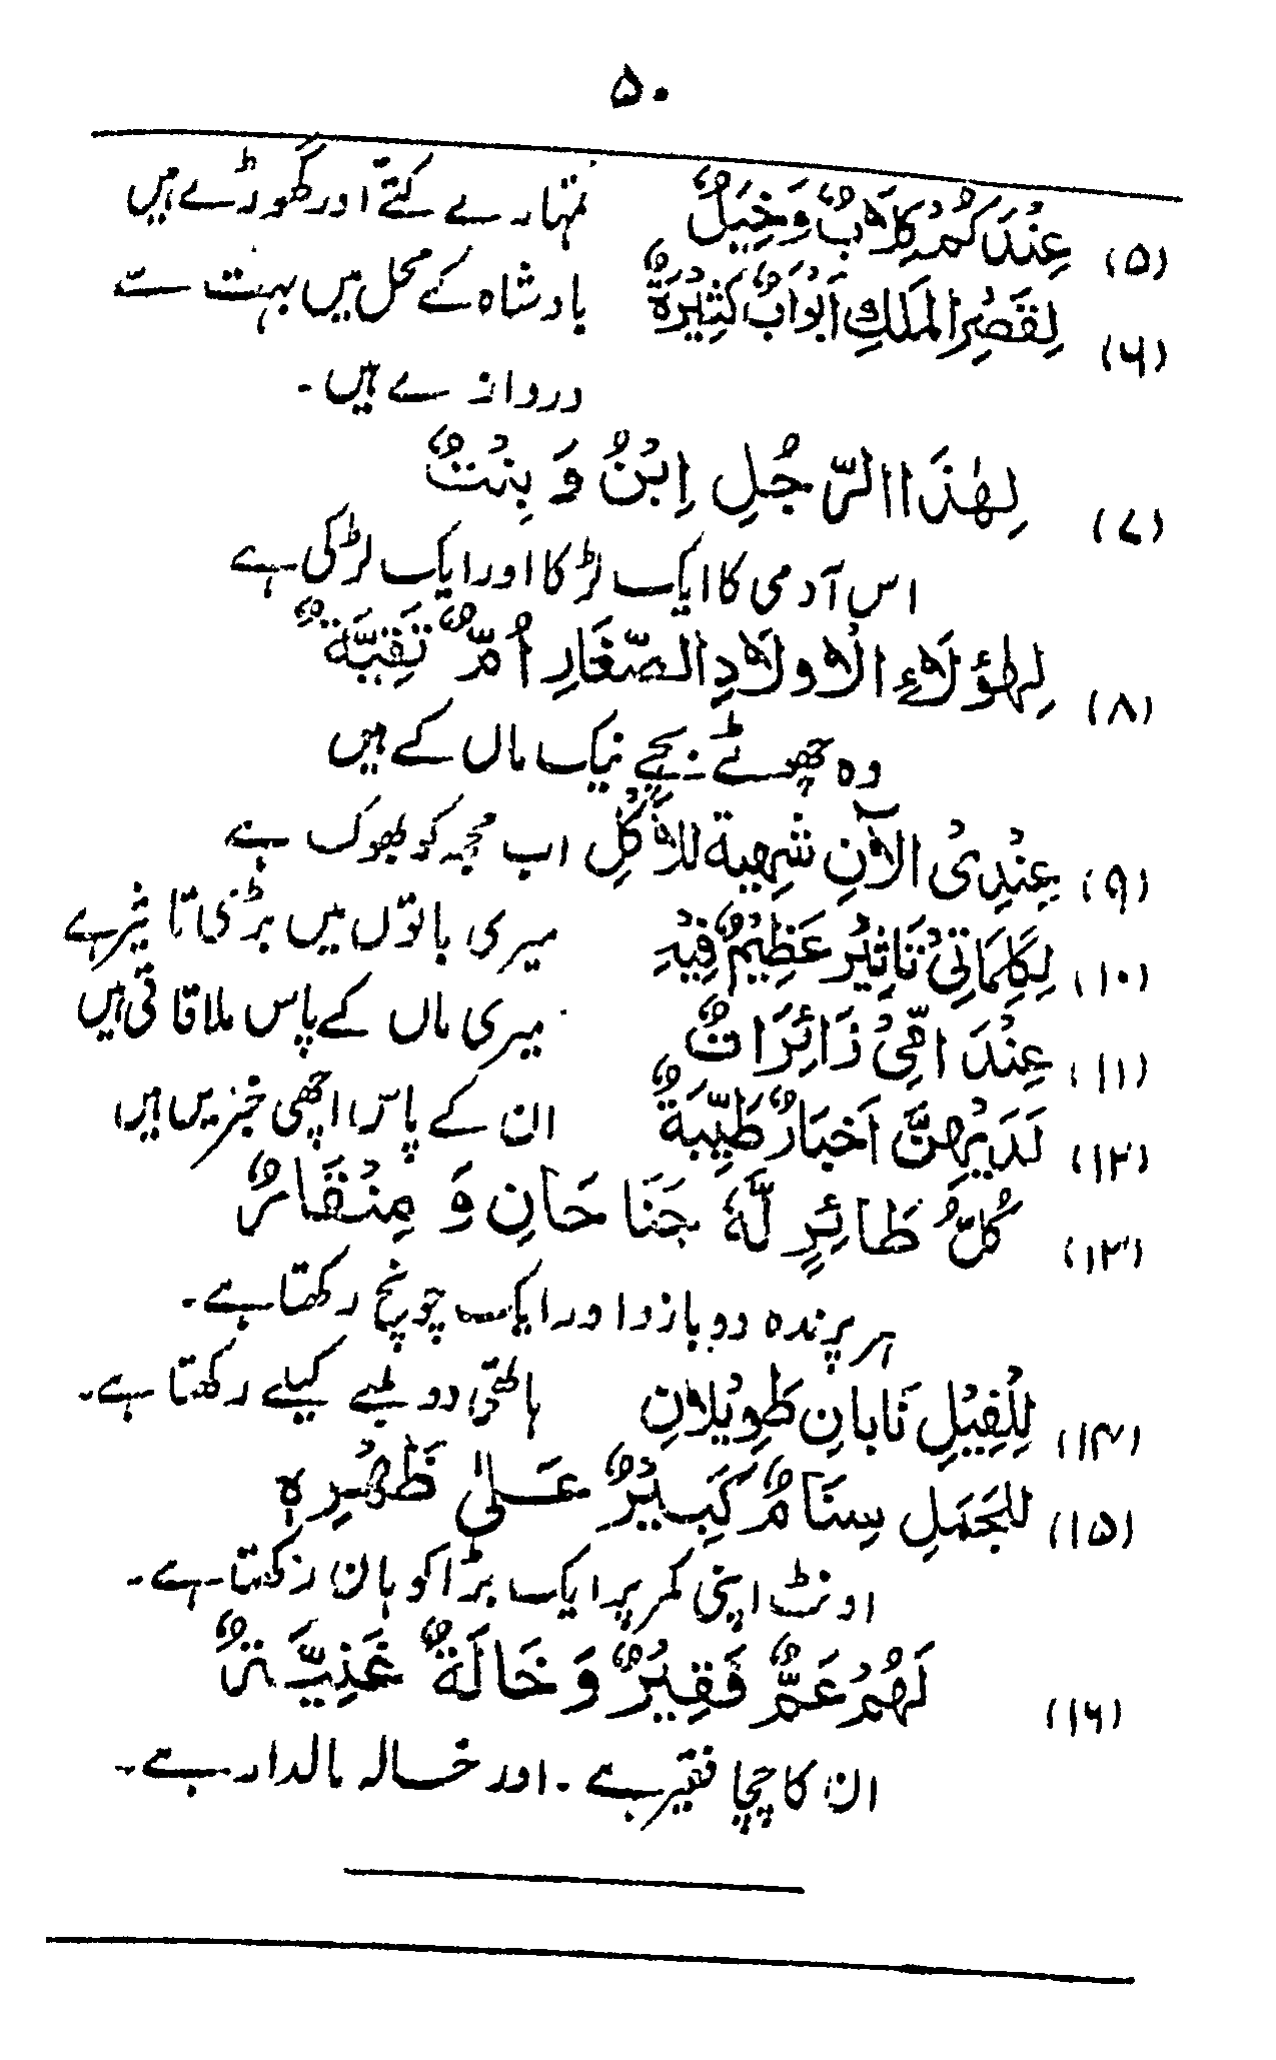 ۵۰
(۵) عِنْدَكُمْ كِلَابٌ وَخَيْلٌ تمہارے کتّے اور گھوڑے ہیں
(۶) لِقَصْرِ الْمَلِكِ اَبْوَابٌ كَثِيْرَةٌ بادشاہ کے محل میں بہت سے
دروازے ہیں۔
(۷) لِهٰذَا الرَّجُلِ اِبْنٌ وَ بِنْتٌ
اس آدمی کا ایک لڑکا اور ایک لڑکی ہے
(۸) لِهٰؤُلَاءِ الْاَوْلَادِ الصِّغَارِ اُمٌّ تَقِيَّةٌ
وہ چھوٹے بچے نیک ماں کے ہیں
(۹) عِنْدِىْ الْآنِ شَهِية للاَكْلِ اب مجھ کو بھوک ہے
(۱۰) لِكَلِمَاتِىْ تَاثِيْرٌ عَظِيْمٌ فِيْهِ میری باتوں میں بڑی تا ثیر ہے
(۱۱) عِنْدَ اُمِّىْ زَائِرَاتٌ میری ماں کے پاس ملاقاتی ہیں
(۱۲) لَدَيْهِنَّ اَخْبَارٌ طَيِّبَةٌ ان کے پاس اچھی خبریں ہیں
(۱۳) كُلُّ طَائِرٍ لَّهٗ جَنَاحَانِ وَ مِنْقَارٌ
ہر پرندہ دو بازو اور ایک چونچ رکھتا ہے۔
(۱۴) لِلْفِيْلِ نَابَانِ طَوِيْلَانِ ہاتھی دو لمبے کیلے رکھتا ہے۔
(۱۵) للجَمَلِ سِنَامٌ كَبِيْرٌ عَلىٰ ظَهْرِهٖ
اونٹ اپنی کمر پر ایک بڑا کوہان رکھتا ہے۔
(۱۶) لَهُمْ عَمٌّ فَقِيْرٌ وَ خَالَةٌ غَنِيَّةٌ
ان کا چچا فقیر ہے۔ اور خالہ مالدار ہے۔